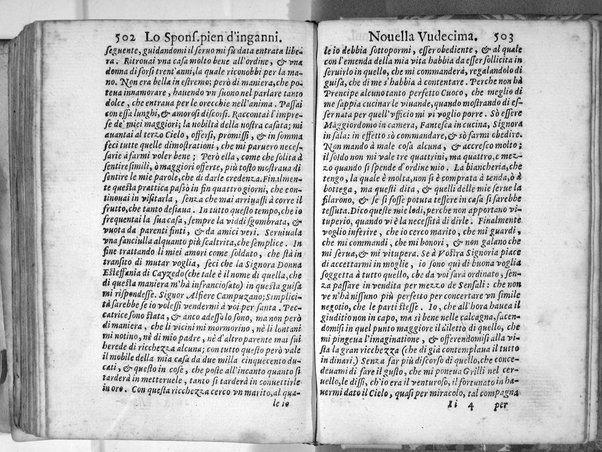 502 Lo Spons.pien d'inganni.
seguente, guidandomi il seruo mi fù data entrata libe-
ra. Ritrouai vna casa molto bene all'ordine, & vna
donna di forsi trent'anni, la quale riconobbi per la ma-
no. Non era bella in estremo; però di maniera, che po-
teua innamorare, hauendo vn suono nel parlare tanto
dolce, che entraua per le orecchie nell'anima. Passai
con essa lunghi, & amorosi discorsi. Raccontai l'impre-
se de' miei maggiori; la nobiltà della nostra casata; mi
auantai al terzo Cielo, offersi, promissi, & in somma
feci tutte quelle dimostrationi, che mi paruero necess-
arie à farmi voler bene; Però ella, come che solita à
sentire simili, ò maggiori offerte, più tosto mostraua di
sentire le mie parole, che di darle credenza. Finalmen-
te questa pratica passò in fin quattro giorni, che con-
tinouai in visitarla, senza che mai arriuassi à corre il
frutto, che tanto desiaua. In tutto questo tempo, che io
frequentai la sua casa, sempre la viddi sgombrata, &
vuota da parenti finti, & da amici veri. Seruiuala
vna fanciulla alquanto più scaltrita, che semplice. In
fine trattando li miei amori come soldato, che stà in
transito di mutar voglia, feci che la Signora Donna
Estessania di Cayzedo (che tale è il nome di quella, che
di questa maniera m'hà infranciosato) in questa guisa
mi rispondesse. Signor Alfiere Campuzano; Simplici-
tà sarebbe se io volessi vendermi à voi per santa. Pec-
catrice sono stata, & anco adesso lo sono, ma non però
di maniera, che li vicini mi mormorino, nè li lontani
mi notino, nè di mio padre, nè d'altro parente mai fui
herede di ricchezza alcuna; con tutto questo però vale
il mobile della mia casa da due milla cinquecento du-
cati, & questo in cose, che poste all'incanto quanto si
tarderà in metteruele, tanto si tarderà in conuertirle
in oro. Con questa ricchezza cerco vn marito, al qua-
le io
Nouella Vndecima. 503
le io debbia sottopormi, esser obediente, & al quale
con l'emenda della mia vita habbia da esser sollicita in
seruirlo in quello, che mi commanderà, regalandolo di
guisa, che di me n'habbia à contentare. Perche non hà
Prencipe alcuno tanto perfetto Cuoco, che meglio di
me sappia cucinar le viuande, quando mostrando di es-
sernata per quell'vfficio mi vi voglio porre. Sò essere
Maggiordomo in camera, Fantesca in cucina, Signora
in sala: in effetto sò commandare, & sò farmi obedire.
Non mando à male cosa alcuna, & accresco molto;
il soldo non mi vale tre quattrini, ma quattro, e mez-
zo quando si spende d'ordine mio. La biancheria, che
tengo, la quale è molta, non si è comprata à tenda, ò à
bottega, ma questi dita, & quelli delle mie serue la
filarono, & se si fosse potuta tessere in casa si sarebbe
tessuta. Dico queste mie lodi, perche non apportano vi-
tuperio, quando vi è mera necessità di dirle. Finalmente
voglio inferire, che io cerco marito, che mi guardi,
che mi commandi, che mi honori, & non galano che
mi serua, & mi vitupera. Se à Vostra Signoria piace
di accettarmi in moglie, io sono quì di buona voglia
soggetta à tutto quello, che da voi sarà ordinato, sen-
za passare in vendita per mezzo de Sensali: che non
ve n'hà nissuno più perfetto per concertare vn simile
negotio, che le parti stesse. Io, che all'hora haueua il
giuditio non in capo, ma sì bene nelle calcagna, facen-
domisi in quel punto maggiore il diletto di quello, che
mi pingeua l'imaginatione, & offerendomisi alla vi-
sta la gran ricchezza (che di già contemplaua il tutto
in dinari.) Senza far più discorso di quello, che conce-
deuami di fare il gusto, che mi poneua Grilli nel cer-
uello, le dissi, ch'io era il venturoso, il fortunato in ha-
uermi dato il Cielo, quasi per miracolo, tal compagna
Ii 4 per